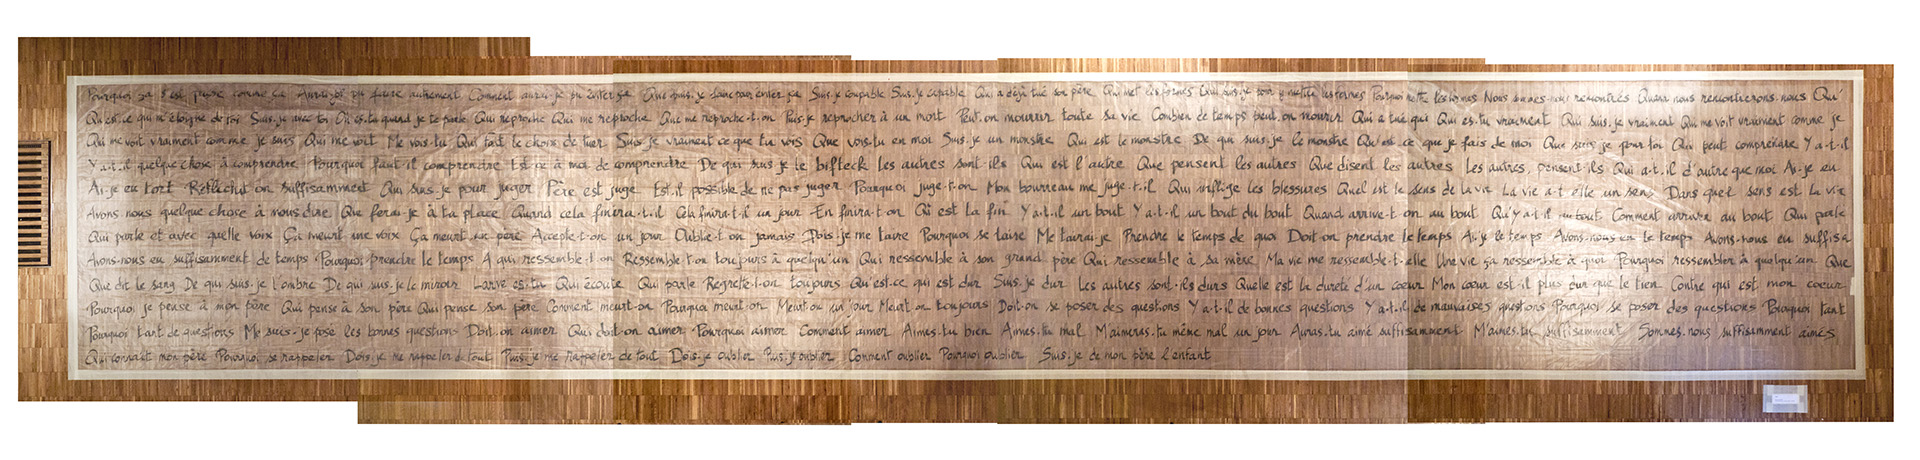 Pourquoi ça s'est passé comme ça Aurai-je pu faire autrement Comment aurai-je pu éviter ça Que puis-je faire pour éviter ça Suis-je coupable Suis-je capable Qui a déjà tué son père Qui met les formes Qui suis-je pour y mettre les formes Pourquoi mettre les formes Nous sommes-nous rencontrés Quand nous rencontrerons-nous Qu'
Qu'est-ce qui m'éloigne de toi Suis-je avec toi Où es-tu quand je te parle Qui reproche Qui me reproche Que me reproche-t-on Puis-je reprocher à un mort Peut-on mourrir toute sa vie Combien de temps peut-on mourir Qui a tué qui Qui es-tu vraiment Qui suis-je vraiment Qui me voit vraiment comme je
Qui me voit vraiment comme je suis Qui me voit Me vois-tu Qui fait le choix de tuer Suis-je vraiment ce que tu vois Que vois-tu en moi Suis-je un monstre Qui est le monstre De qui suis-je le monstre Qu'est-ce que je fais de moi Que suis-je pour toi Qui peut comprendre Y-a-t-il
Y-a-t-il quelque chose à comprendre Pourquoi faut-il comprendre Est-ce à moi de comprendre De qui suis-je le bifteck Les autres sont-ils Qui est l'autre Que pensent les autres Que disent les autres Les autres pensent-ils Qui a-t-il d'autre que moi Ai-je eu
Ai-je eu tort Réfléchit-on suffisamment Qui suis-je pour juger Père est juge Est-il possible de ne pas juger Pourquoi juge-t-on Mon bourreau me juge-t-il Qui inflige les blessures Quel est le sens de la vie La vie a-t-elle un sens Dans quel sens est la vie
Avons-nous quelque chose à nous dire Que ferai-je à ta place Quand cela finira-t-il Cela finira-t-il un jour En finira-t-on Où est la fin Y a-t-il un bout Y-a-t-il un bout du bout Quand arrive-t-on au bout Qu'y a-t-il au bout Comment arriver au bout Qui parle
Qui parle et avec quelle voix Ça meurt une voix Ça meurt un père Accepte-t-on un jour Oublie-t-on jamais Dois-je me taire Pourquoi se taire Me tairai-je Prendre le temps de quoi Doit-on prendre le temps Ai-je le temps Avons-nous eu le temps Avons-nous eu suffisa
Avons-nous eu suffisamment de temps Pourquoi prendre le temps A qui ressemble-t-on Ressemble-t-on toujours à quelqu'un Qui ressemble à son grand père Qui ressemble à sa mère Ma vie me ressemble-t-elle Une vie ça ressemble à quoi Pourquoi ressembler à quelqu'un Que
Que dit le sang De qui suis-je l'ombre De qui suis-je le miroir Larve es-tu Qui écoute Qui parle Regrette-t-on toujours Qu'est-ce qui est dur Suis-je dur Les autres sont-ils durs Quelle est la dureté d'un cœur Mon cœur est-il plus pur que le tien Contre qui est mon cœur
Pourquoi je pense à mon père Qui pense à son père Qui pense son père Comment meurt-on Pourquoi meurt-on Meurt-on un jour Meurt-on toujours Doit-on se poser des questions Y-a-t-il de bonnes questions Y-a-t-il de mauvaises questions Pourquoi se poser des questions Pourquoi tant
Pourquoi tant de questions Me suis-je posé les bonnes questions Doit-on aimer Qui doit-on aimer Pourquoi aimer Comment aimer Aimes-tu bien Aimes-tu mal M'aimeras-tu même mal un jour Auras-tu aimé suffisamment M'aimes-tu suffisamment Sommes-nous suffisamment aimés
Qui connait mon père Pourquoi se rappeler Dois-je me rappeler de tout Puis-je me rappeler de tout Dois-je oublier Puis-je oublier Comment oublier Pourquoi oublier Suis-je de mon père l'enfant